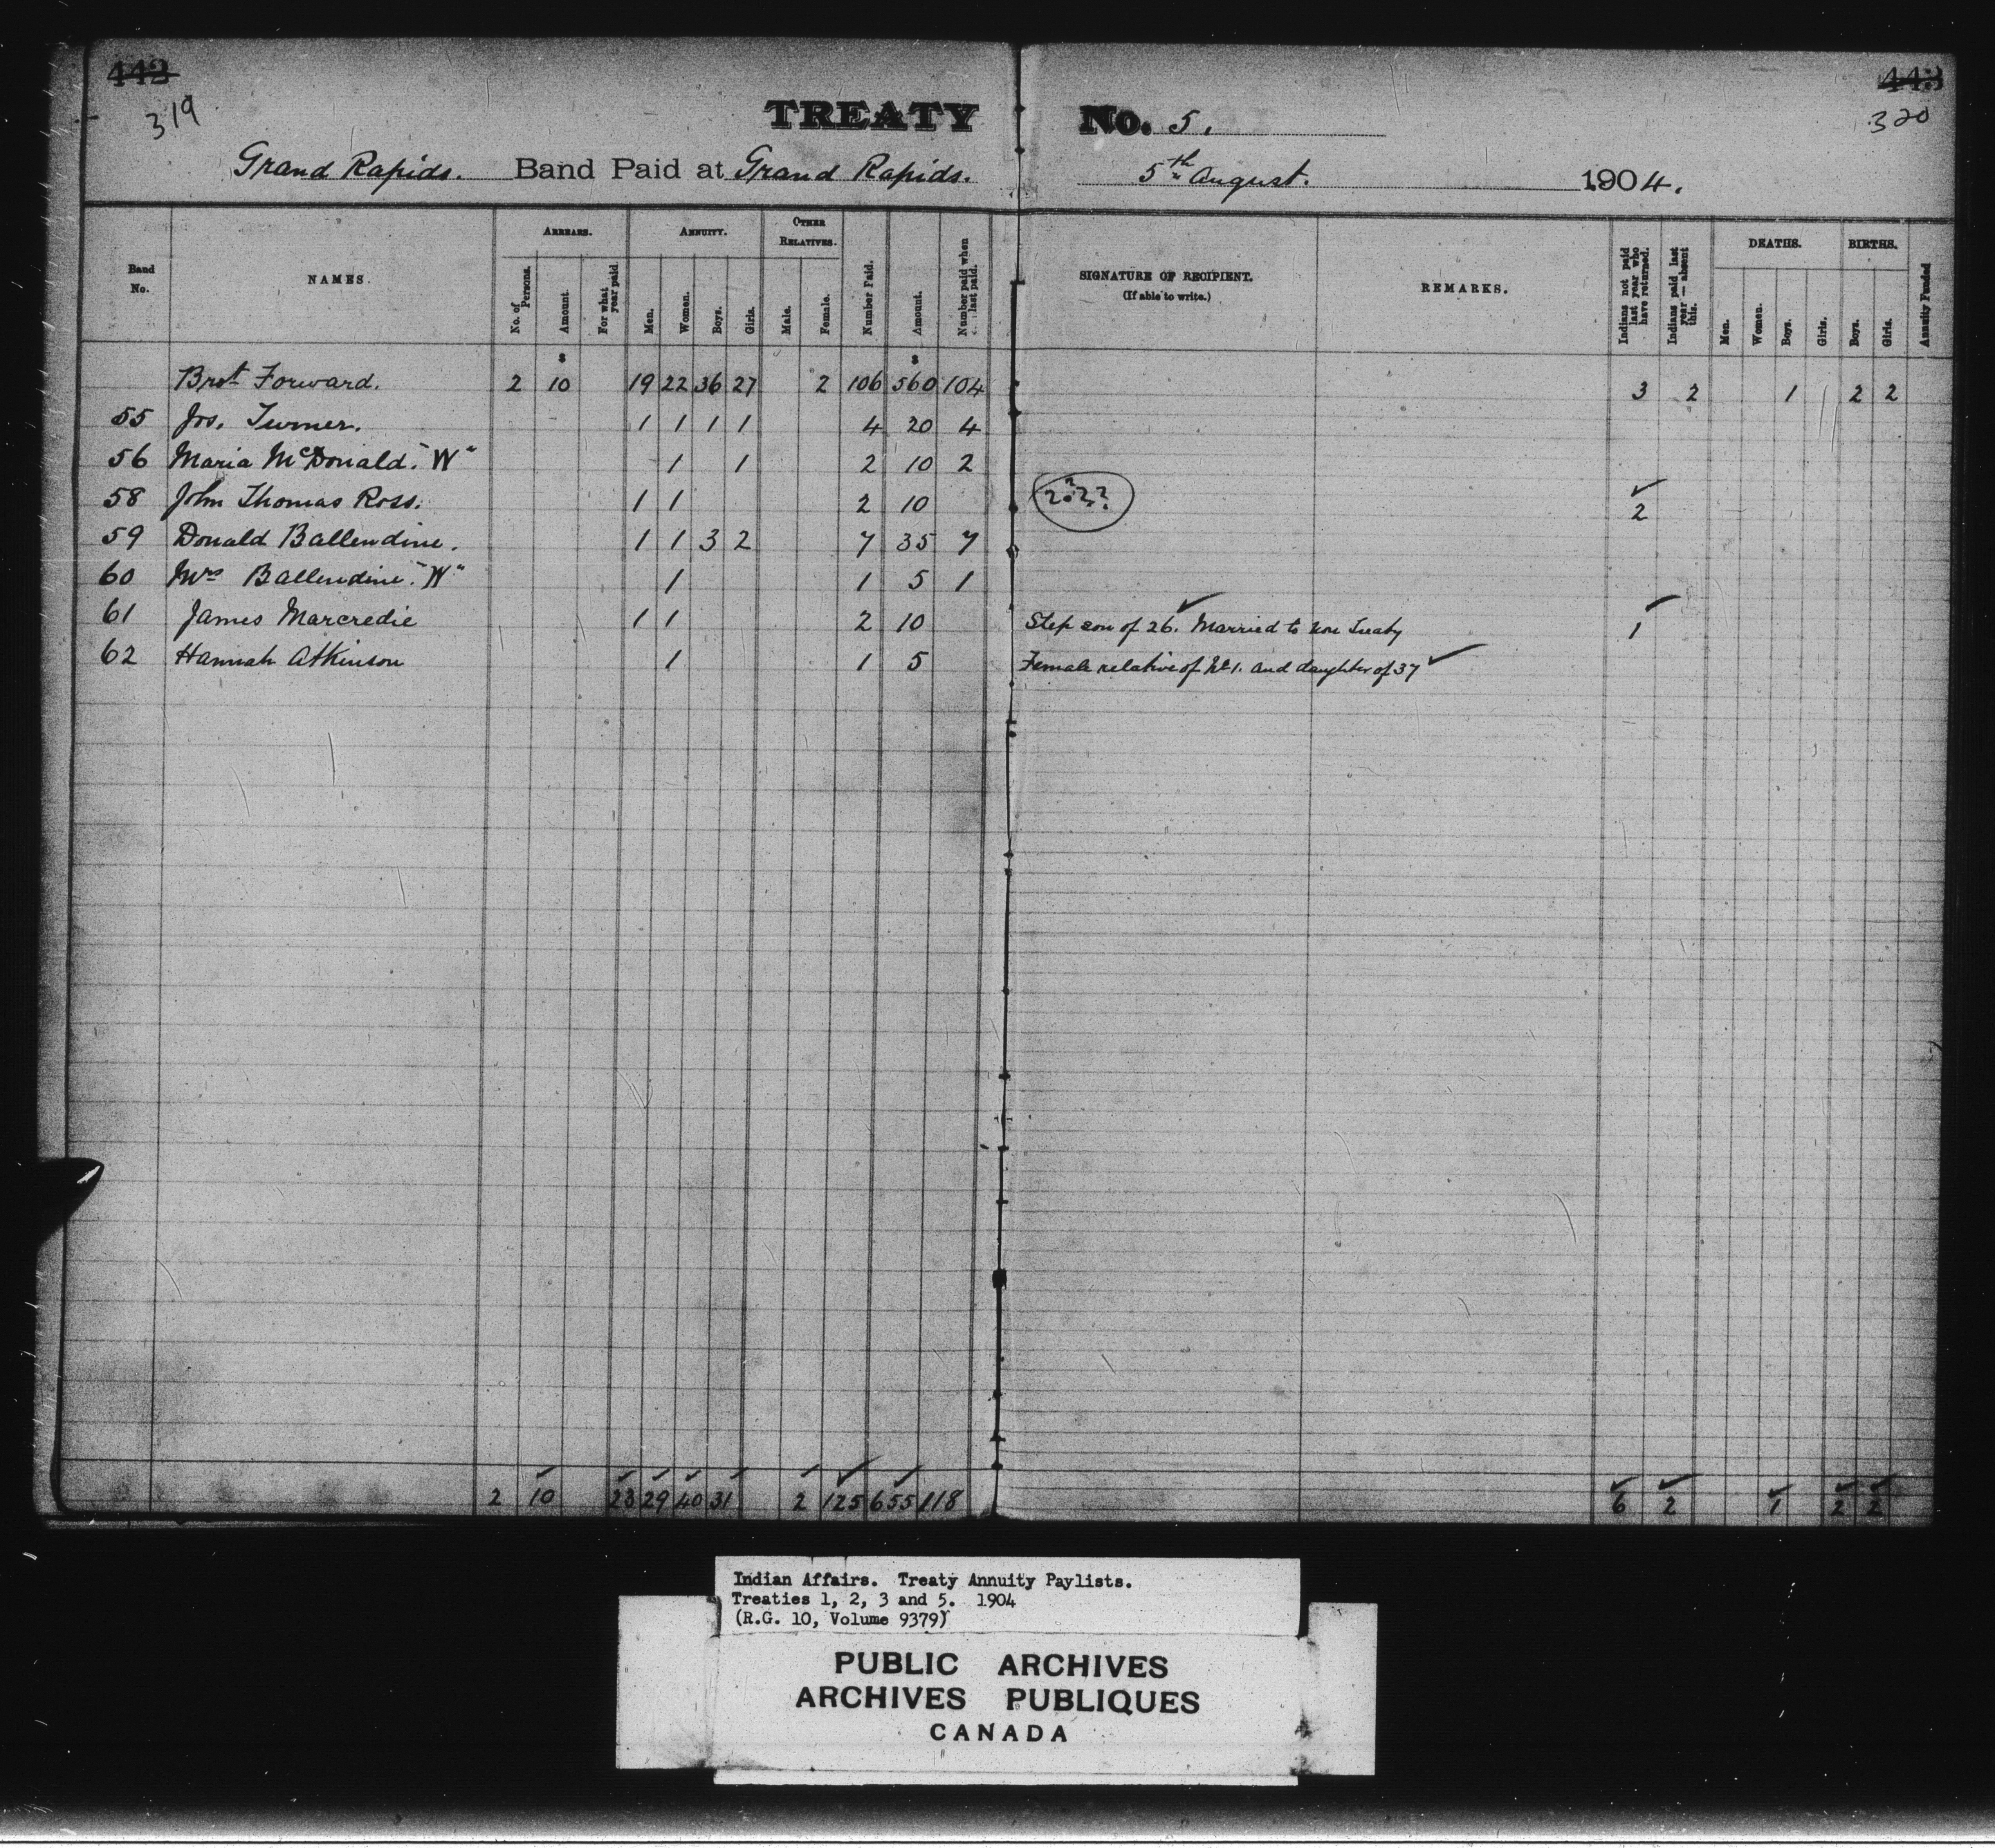 442 443
319 320
TREATY No. 5.
Grand Rapids. Band Paid at Grand Rapids. 5th August. 1904.
Band No. NAMES. ARREARS. No. of Persons. Amount. For what year paid ANNUITY. Men. Women. Boys. Girls. OTHER RELATIVES. Male. Female. Number Paid. Amount. Number paid when last paid. SIGNATURE OF RECIPIENT. (If able to write.) REMARKS. Indians not paid last year who have returned. Indians paid last year — absent this. DEATHS. Men. Women. Boys. Girls. BIRTHS. Boys. Girls. Annuity Funded
$ $
Brot Forward. 2 10 19 22 36 27 2 106 560 104 3 2 1 2 2
55 Jos. Turner. 1 1 1 1 4 20 4
56 Maria McDonald. "W" 1 1 2 10 2
58 John Thomas Ross. 1 1 2 10 2
59 Donald Ballendine. 1 1 3 2 7 35 7
60 Mrs Ballendine. "W" 1 1 5 1
61 James Marcredie 1 1 2 10 Step son of 26. Married to Non Treaty 1
62 Hannah Atkinson 1 1 5 Female relative of No 1. and daughter of 37
2 10 23 29 40 31 2 125 655 118 6 2 1 2 2
Indian Affairs. Treaty Annuity Paylists.
Treaties 1, 2, 3 and 5. 1904
(R.G. 10, Volume 9379)
PUBLIC ARCHIVES
ARCHIVES PUBLIQUES
CANADA